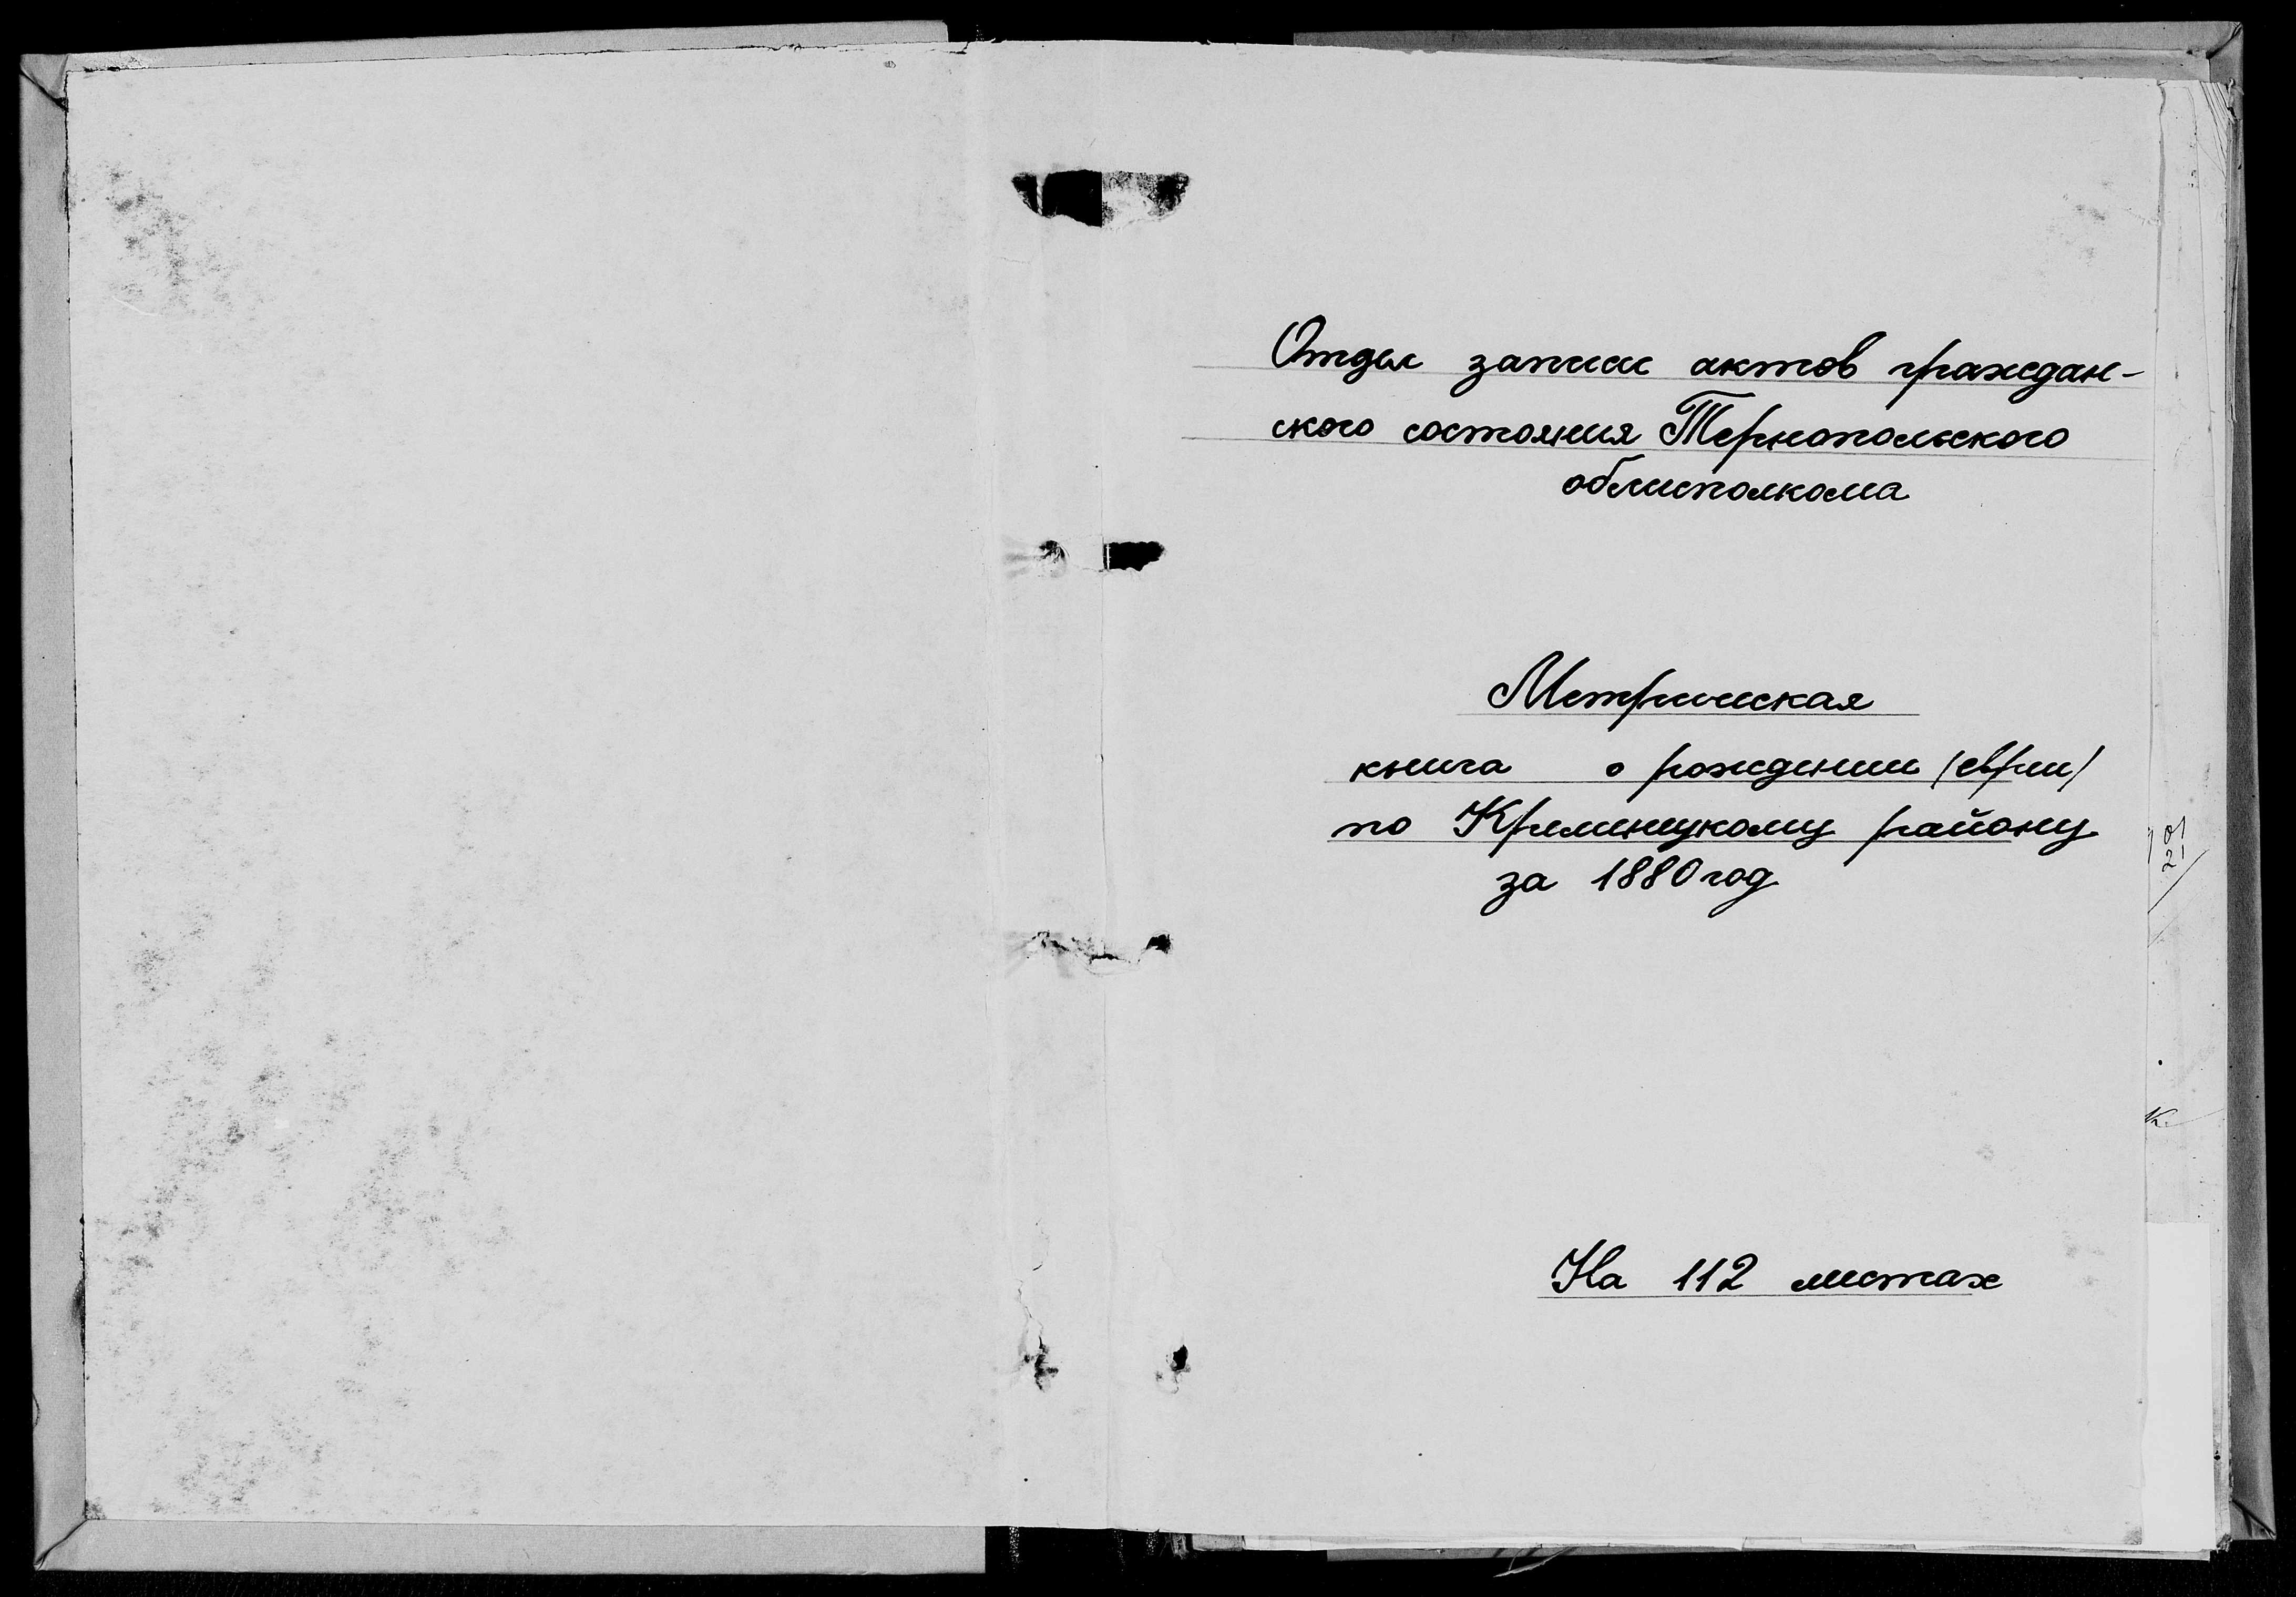 Отдел записи актов граждан-
ского состояния Тернопольского
облисполкома
Метрическая
книга о рождении /евреи/
по Кременецкому району
за 1880 год
На 112 листах